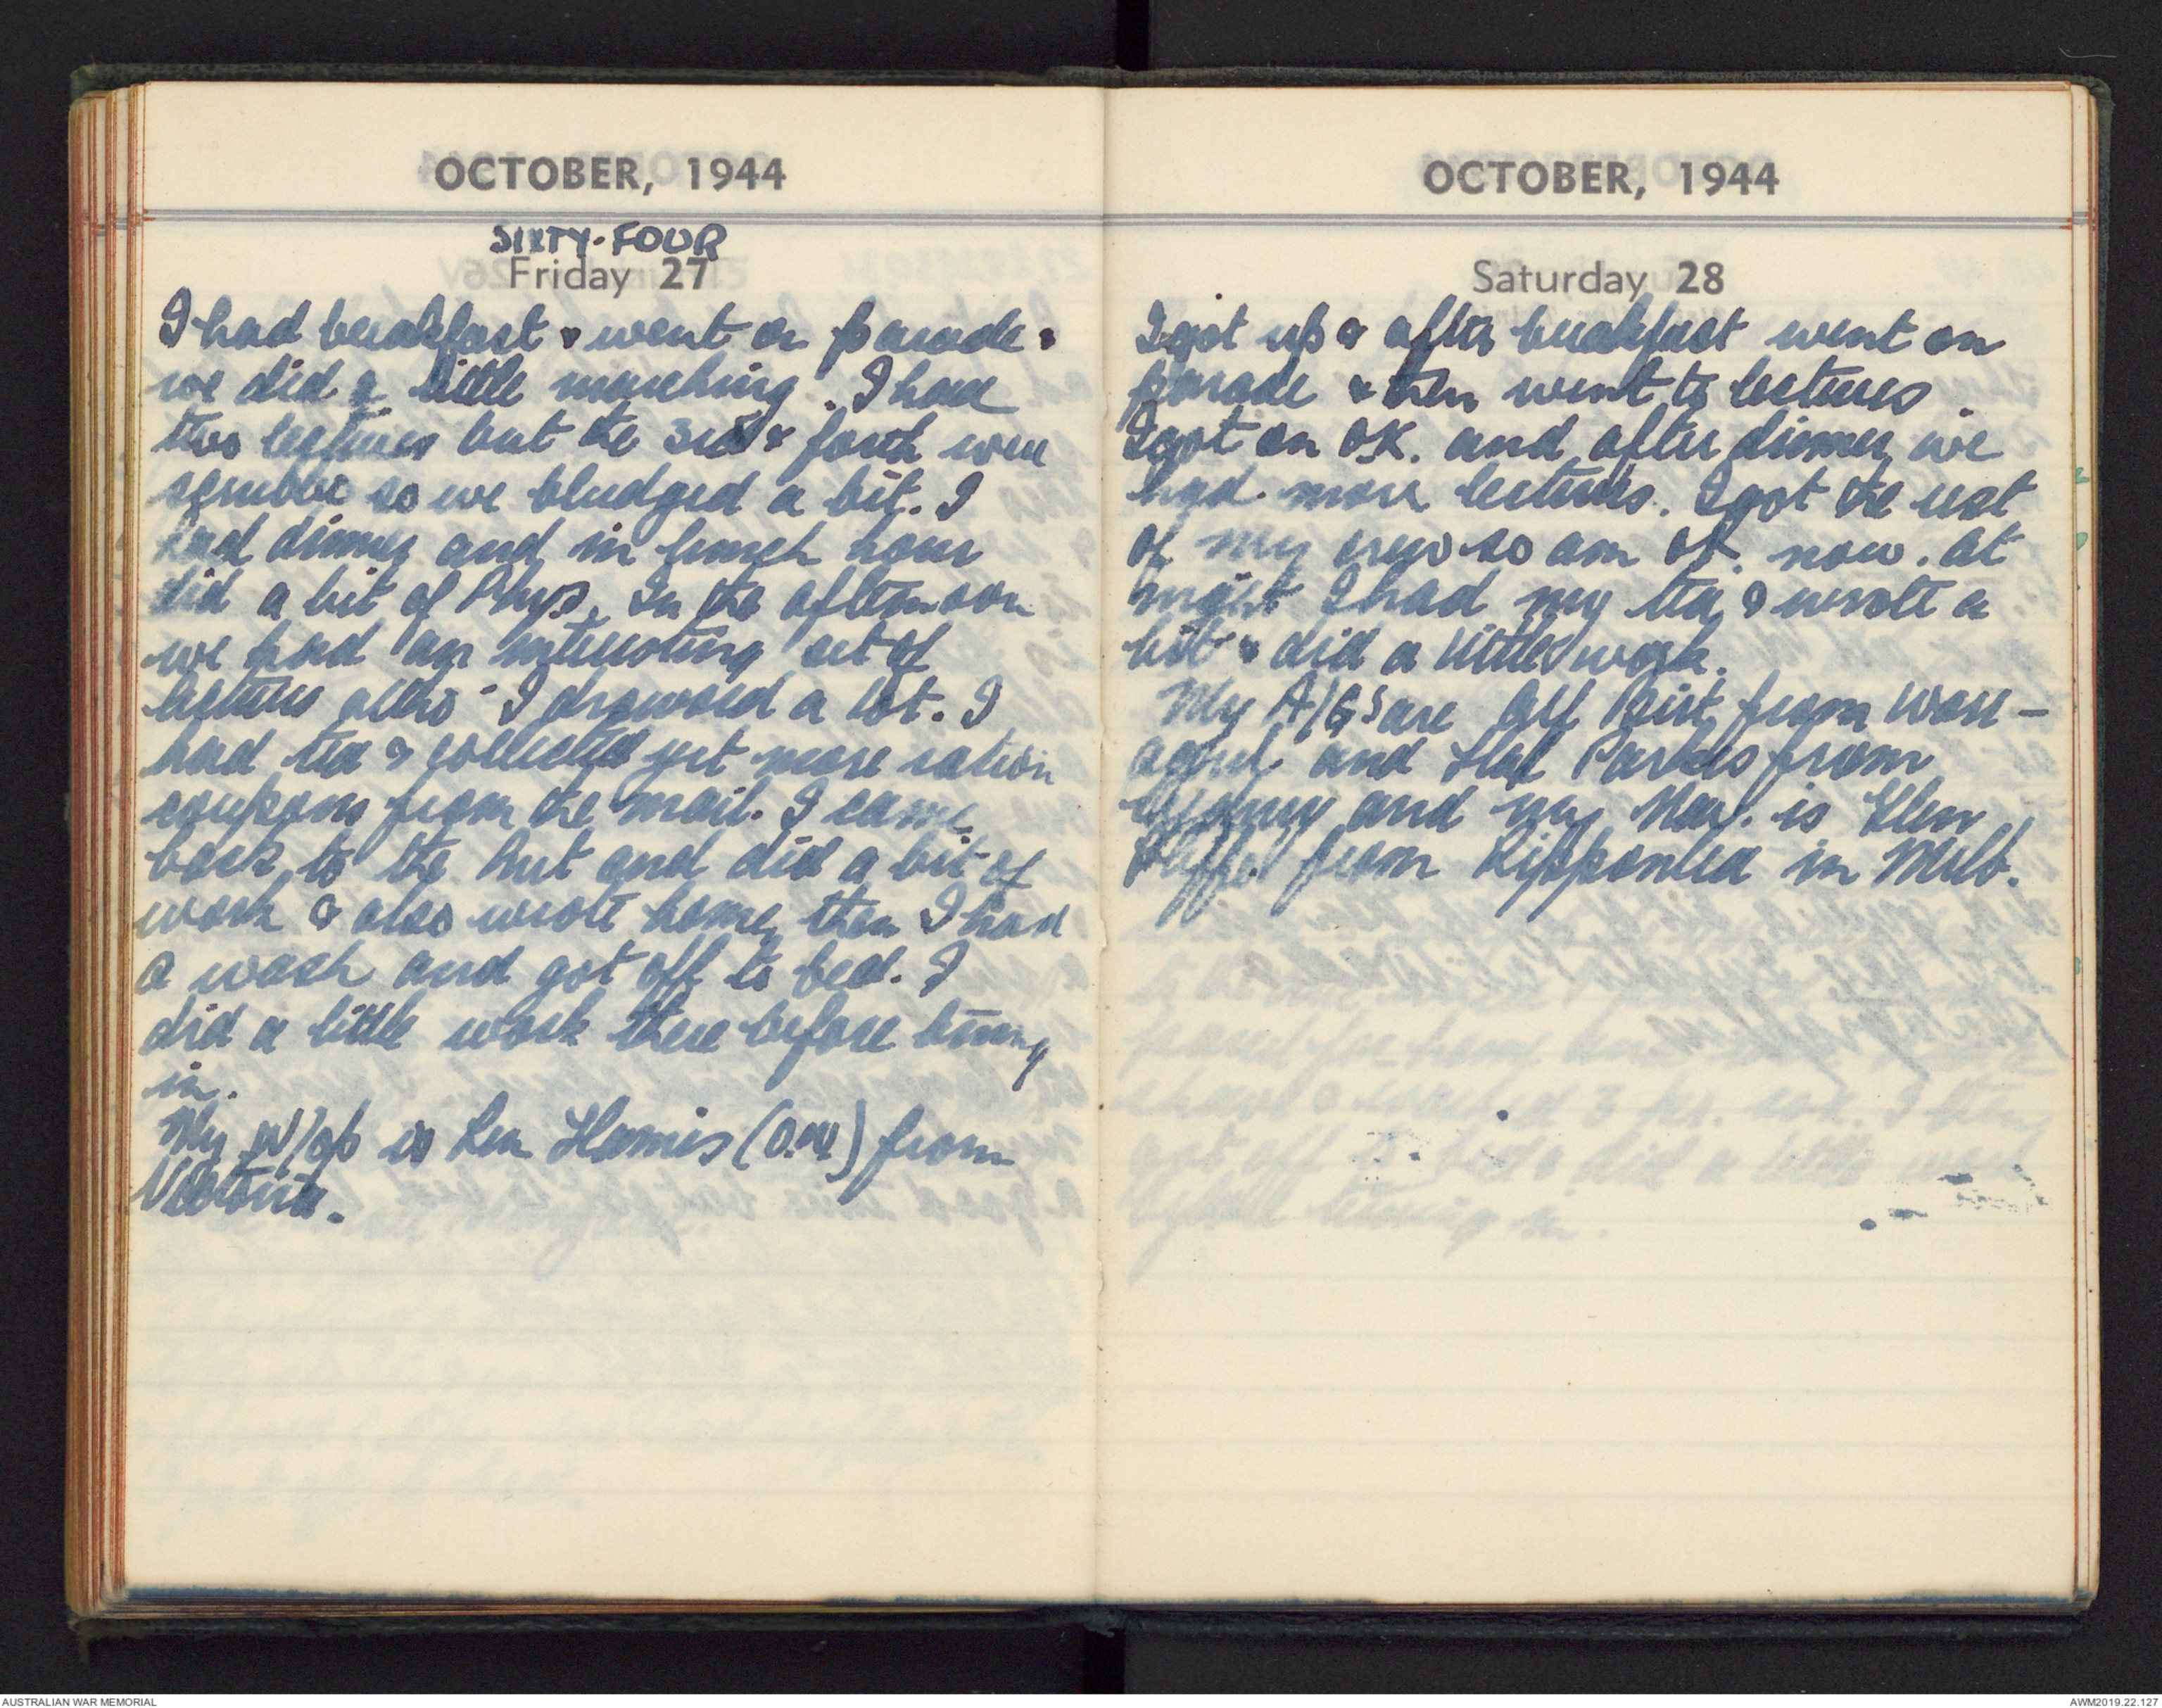 OCTOBER, 1944
SIXTY-FOUR
Friday 27
I had breakfast & went on parade &
we did a little marching. I had
two lectures but the 3rd & forth were
so we bludged a bit. I
had dinner and in lunch hour
did a bit of Phys. In the afternoon
we had an interesting set of
lectures altho' I drowsed a lot. I
had tea & collected yet more ration
coupons from the mail. I came
back to the hut and did a bit of
work & also wrote home, then I had
a wash and got off to bed. I
did a little work there before turning
in.
My W/op is Len from
Victoria.
OCTOBER, 1944
Saturday 28
I got up & after breakfast went on
parade & then went to lectures.
I got on OK. and after dinner we
had more lectures. I got the rest
of my crew so am OK. now. at
night I had my tea & wrote a
bit & did a little work.
My A/G's are Alf Bist from Warr-
agul and Hal Parkes from
Sydney and my Nav. is Glen
from Ripponlea in Melb.
AUSTRALIAN WAR MEMORIAL
AWM2019.22.127